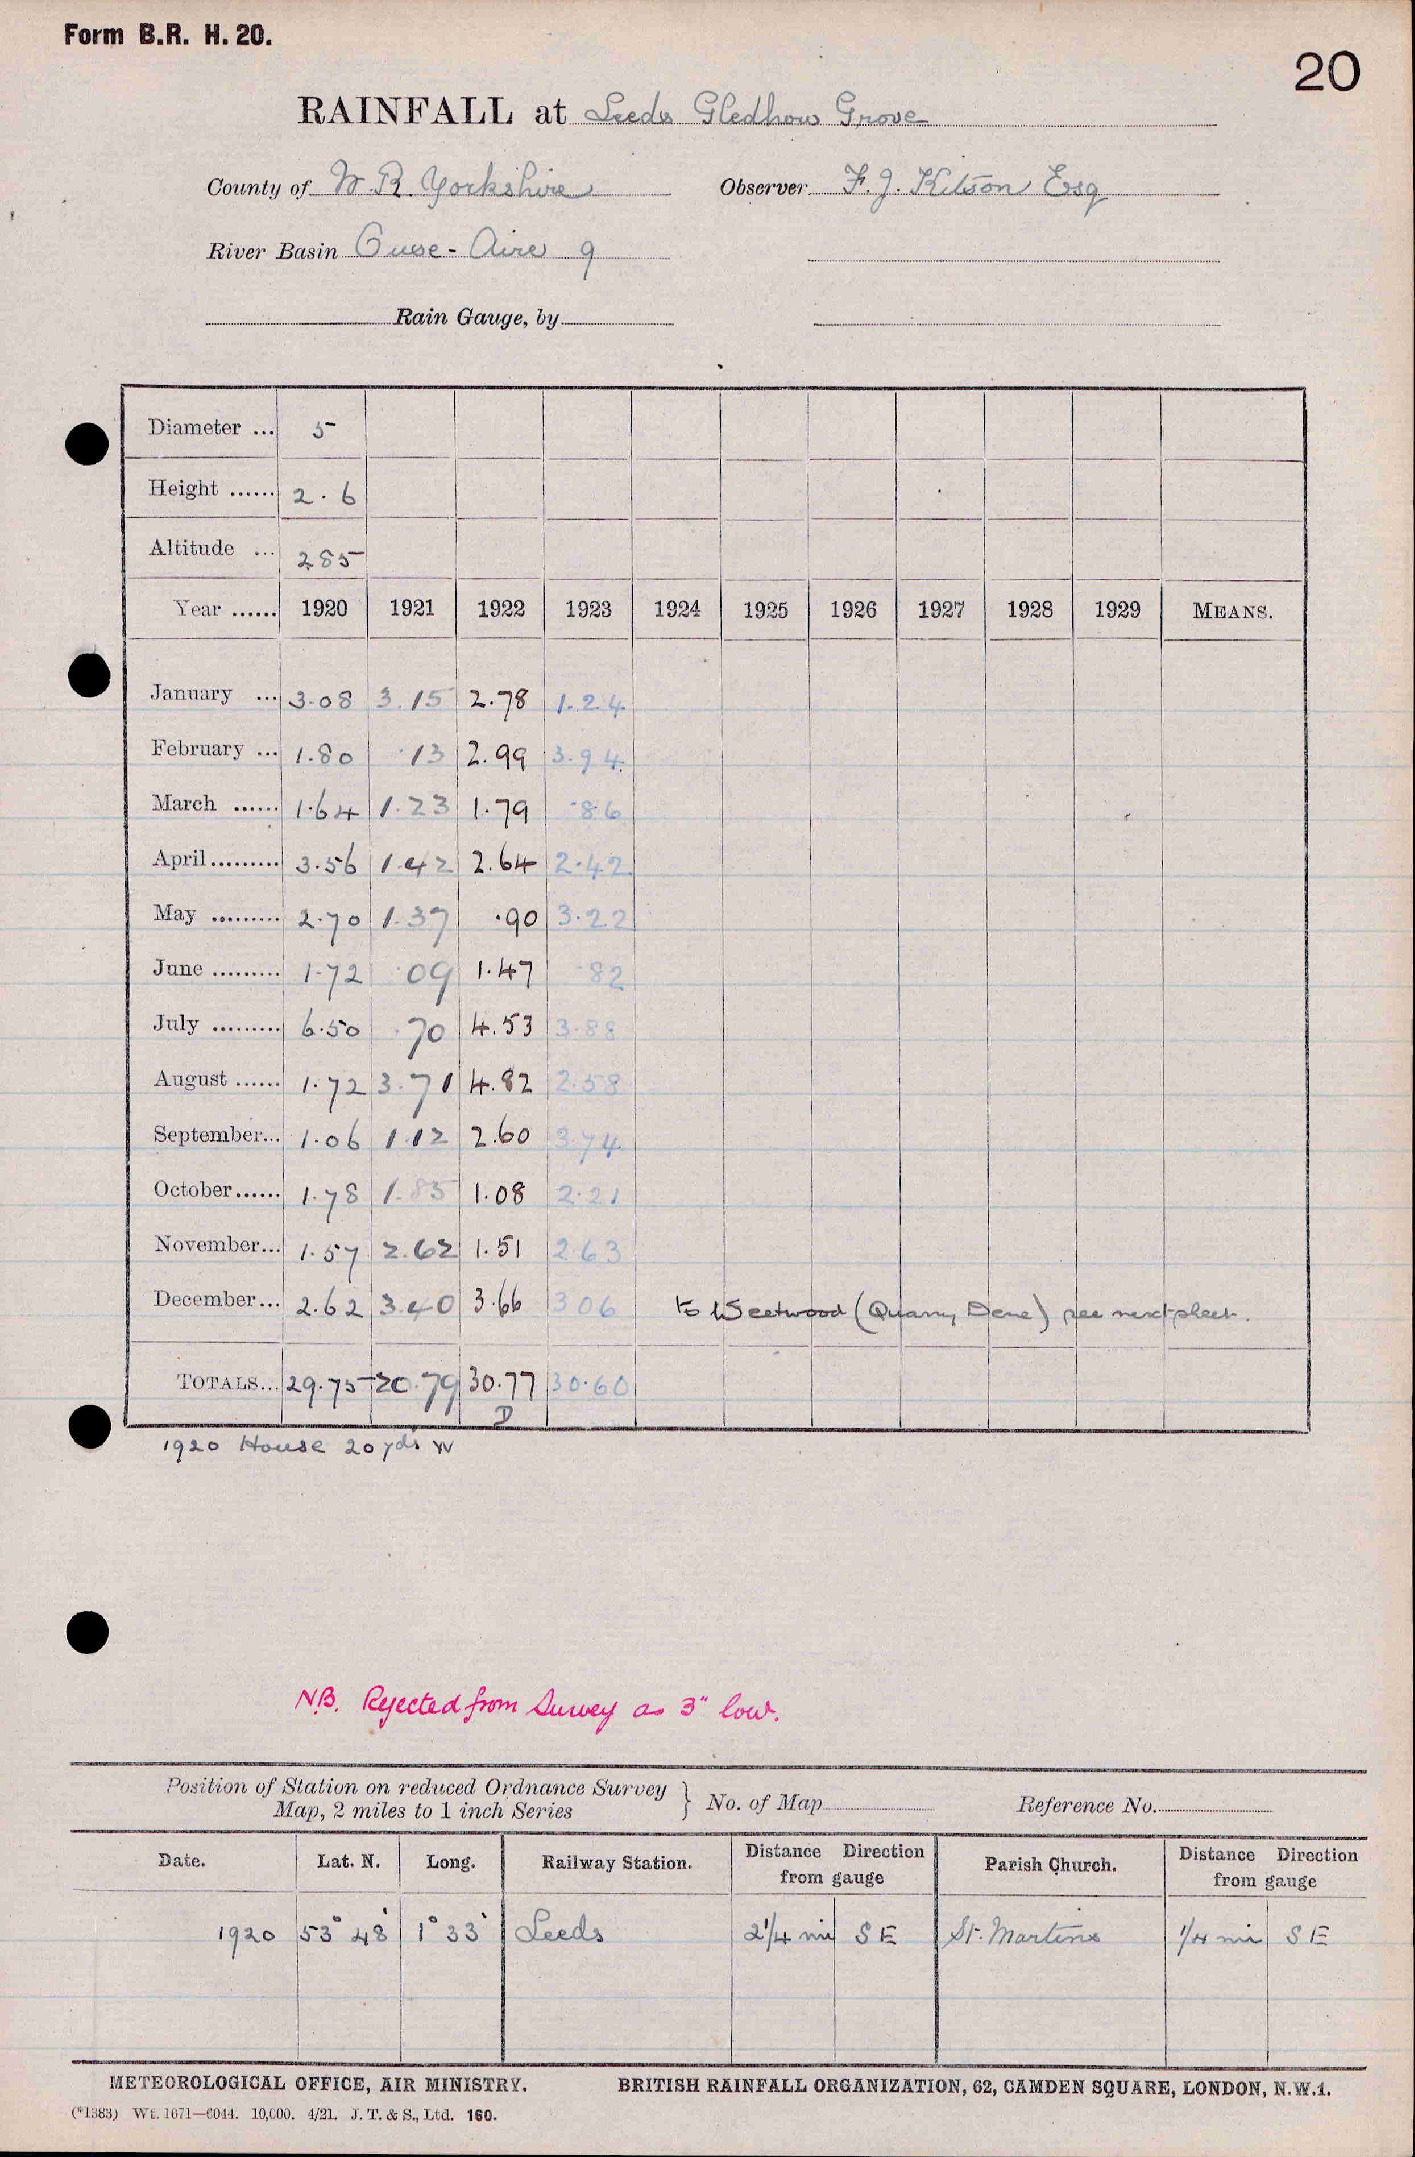 Form B.R. H. 20.
20
RAINFALL at Leeds Gledhow Grove
County of W. R. Yorkshire Observer F. J. Kitson Esq
River Basin Ouse - Aire 9
Rain Gauge, by
Diameter ... 5
Height ...... 2.6
Altitude ... 285
Year ...... 1920 1921 1922 1923 1924 1925 1926 1927 1928 1929 MEANS.
January ... 3.08 3.15 2.78 1.24
February ... 1.80 .13 2.99 3.94
March ...... 1.64 1.23 1.79 .86
April ......... 3.56 1.42 2.64 2.42
May ......... 2.70 1.37 .90 3.22
June ......... 1.72 .09 1.47 .82
July ......... 6.50 .70 4.53 3.88
August ...... 1.72 3.71 4.82 2.58
September... 1.06 1.12 2.60 3.74
October...... 1.78 1.85 1.08 2.21
November... 1.57 2.62 1.51 2.63
December... 2.62 3.40 3.66 3.06 to Weetwood (Quarry Dene) see next sheet.
TOTALS... 29.75 20.79 30.77 30.60
D
1920 House 20 yds W
N.B. Rejected from Survey as 3" low.
Position of Station on reduced Ordnance Survey
Map, 2 miles to 1 inch Series } No. of Map Reference No.
Date. Lat. N. Long. Railway Station. Distance Direction from gauge Parish Church. Distance Direction from gauge
1920 53° 48' 1° 33' Leeds 2 1/4 mi S E St. Martins 1/4 mi S E
METEOROLOGICAL OFFICE, AIR MINISTRY. BRITISH RAINFALL ORGANIZATION, 62, CAMDEN SQUARE, LONDON, N.W.1.
(*1383) Wt. 1671—6044. 10,000. 4/21. J. T. & S., Ltd. 160.